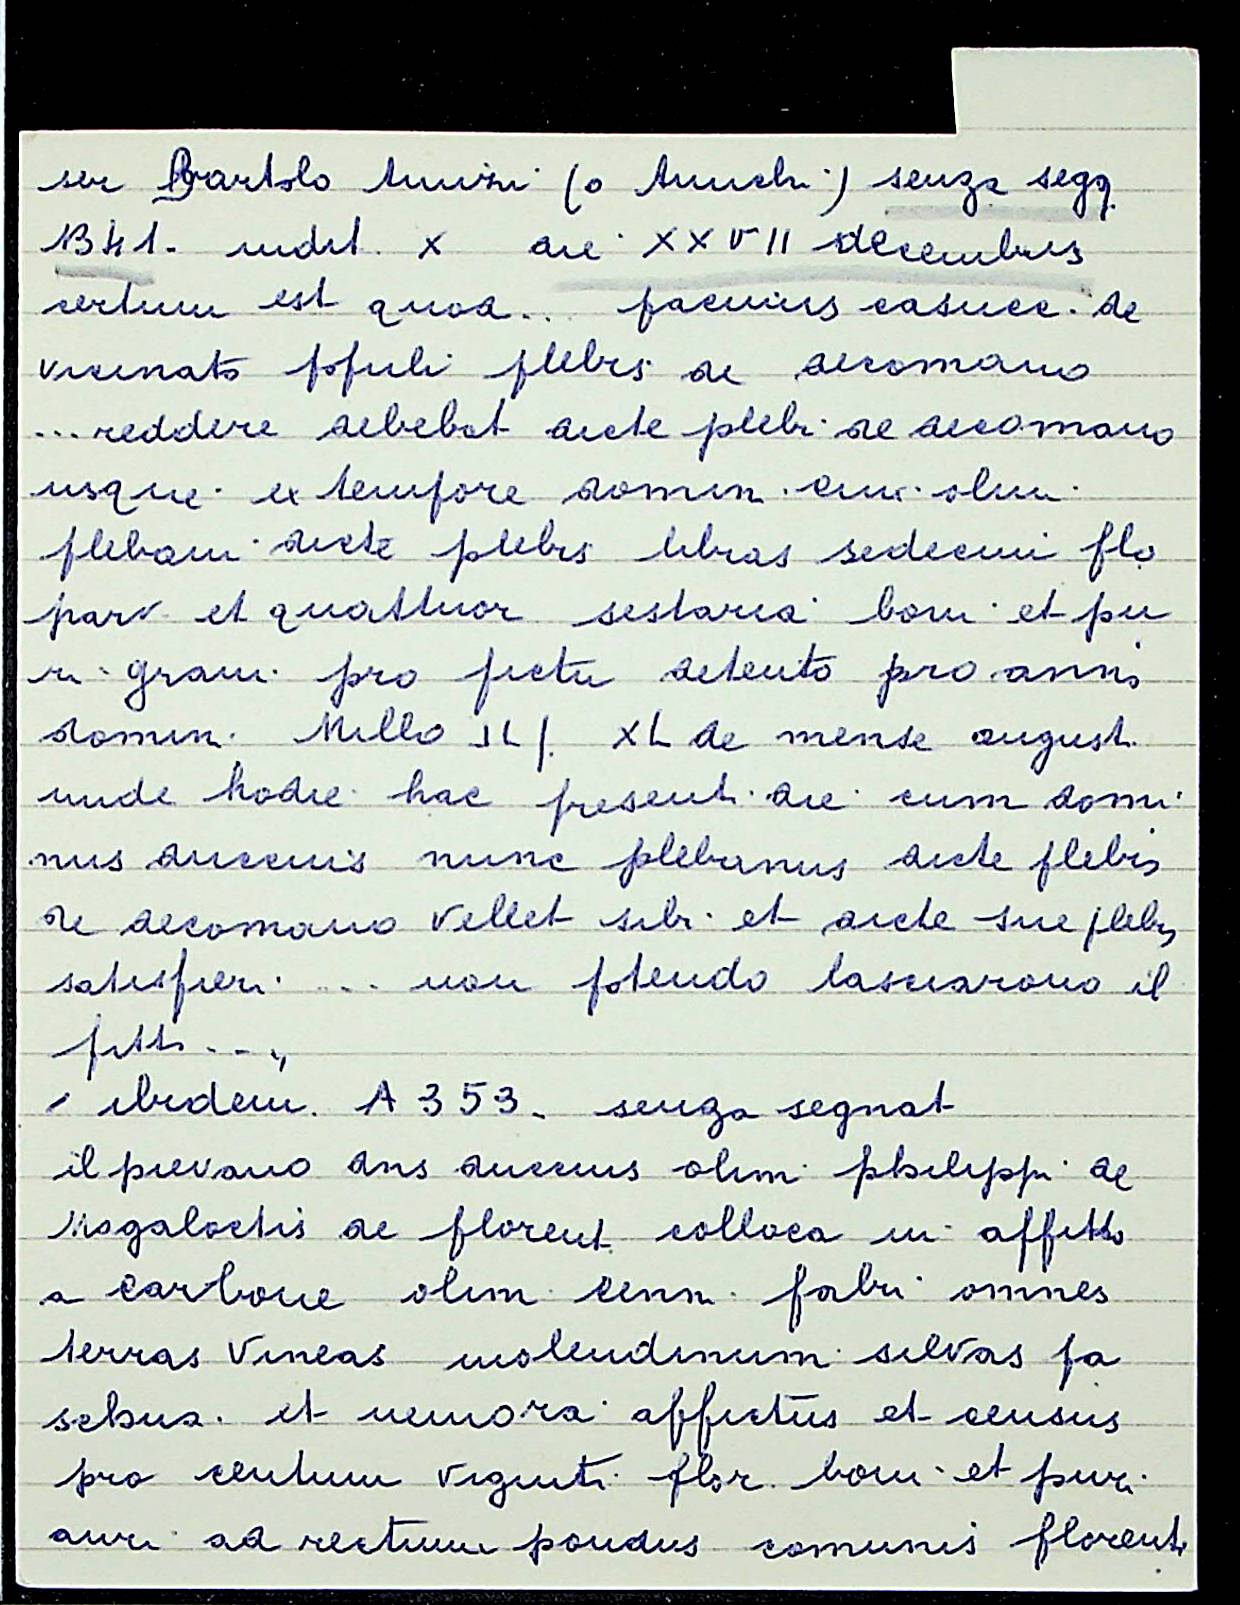 ser Bartolo Amizi (o Amichi) senza segn.
1341. indit. X die XXVII decembris
certum est quod... facinus casucc. de
vicinato popoli plebis de decomano
...reddere debebat dicte plebi de decomano
usque ex tempore domin. olim
plebani dicte plebis libras sedecim flo
parv. et quattuor sestaria boni et pu
ri grani pro fictu detento pro annis
domin. Millo XL de mense august.
unde hodie hac presenti die cum domi
nus duccius nunc plebanus dicte plebis
de decomano vellet sibi et dicte sue plebis
satisfieri ... non potendo lasciarono il
fitto...„
/ ibidem. A 353. senza segnat
il pievano dns duccius olim philippi de
Magaloctis de florent. colloca in affitto
a carbone olim cenni fabri omnes
terras vineas molendinum silvas pa
schua. et nemora affictūs et census
pro centum viginti flor. boni et puri
auri ad rectum pondus comunis florent.